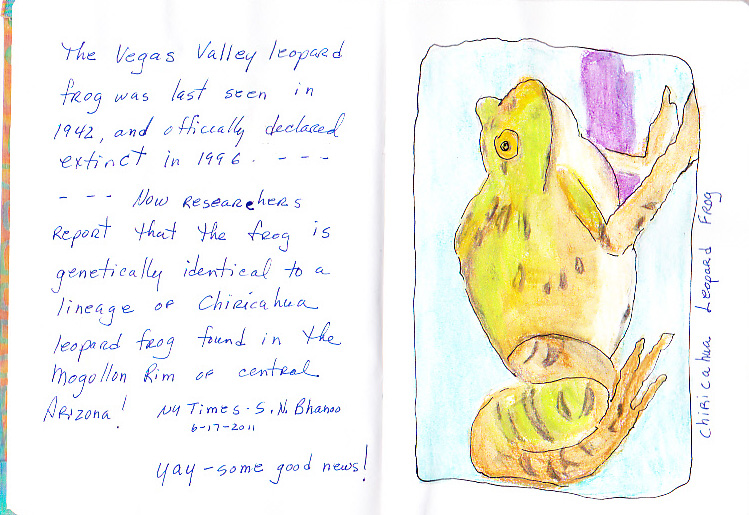 The Vegas Valley leopard
frog was last seen in
1942, and officially declared
extinct in 1996. - - -
- - - Now Researchers
Report that the frog is
genetically identical to a
lineage of Chiricahua
leopard frog found in the
Mogollon Rim of central
Arizona!
NY Times - S. N. Bhanoo
6-17-2011
Yay - some good news!
Chiricahua Leopard Frog